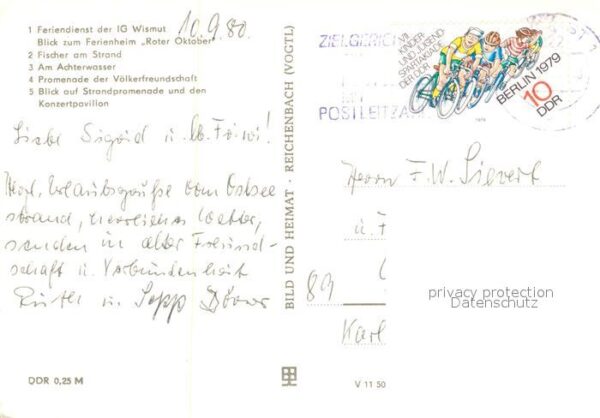 1 Feriendienst der IG Wismut
Blick zum Ferienheim „Roter Oktober"
2 Fischer am Strand
3 Am Achterwasser
4 Promenade der Völkerfreundschaft
5 Blick auf Strandpromenade und den
Konzertpavillon
10.9.80.
Liebe Sigrid u. lb. Föwi!
Herzl. Urlaubsgrüße vom Ostsee
strand, herrliches Wetter,
senden in alter Freund-
schaft u. Verbundenheit
u. Sepp
DDR 0,25 M
BILD UND HEIMAT · REICHENBACH (VOGTL)
V 11 50
ZIELGERICH
POSTLEITZA
VII.
KINDER-
UND JUGEND-
SPARTAKIADE
DER DDR
BERLIN 1979
10
DDR
1979
Herrn F. W. Sievert
u. F
89
Karl
privacy protection
Datenschutz